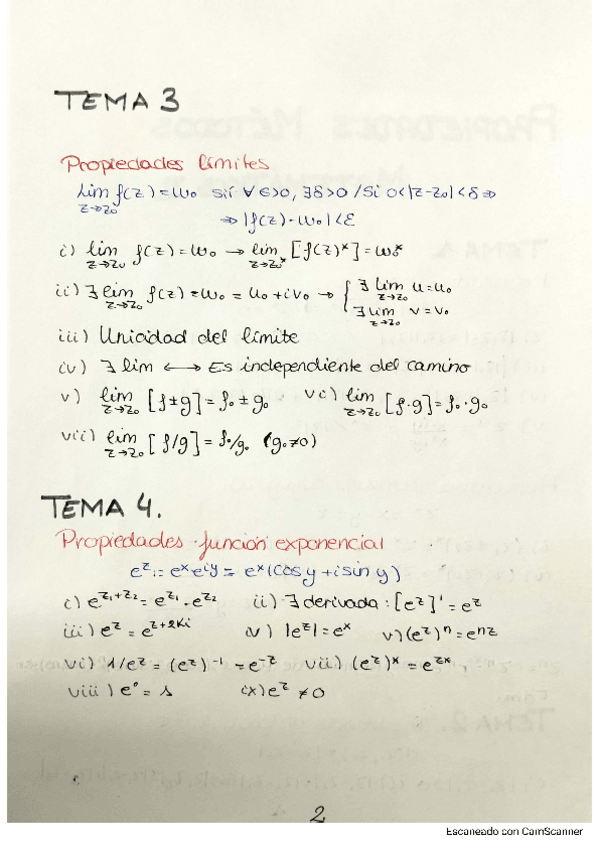 TEMA 3
Propiedades límites
lim f(z)=w₀ sii ∀ ε>0, ∃δ>0 / Si 0<|z-z₀|<δ ⇒
z→z₀
⇒ |f(z)-w₀|<ε
i) lim f(z)=w₀ → lim [f(z)*]=w₀*
z→z₀ z→z₀*
ii) ∃ lim f(z)=w₀=u₀+iv₀ → { ∃ lim u=u₀
z→z₀ z→z₀
∃ lim v=v₀
z→z₀
iii) Unicidad del límite
iv) ∃ lim ⟷ Es independiente del camino
v) lim [f±g]=f₀±g₀ vi) lim [f·g]=f₀·g₀
z→z₀ z→z₀
vii) lim [f/g]=f₀/g₀ (g₀≠0)
z→z₀
TEMA 4.
Propiedades función exponencial
e^z = e^x e^iy = e^x (cos y + i sin y)
i) e^z₁+z₂ = e^z₁ · e^z₂ ii) ∃ derivada: [e^z]' = e^z
iii) e^z = e^z+2Ki iv) |e^z|=e^x v) (e^z)^n = e^nz
vi) 1/e^z = (e^z)^-1 = e^-z vii) (e^z)* = e^z*
viii) e^0 = 1 ix) e^z ≠ 0
2
Escaneado con CamScanner